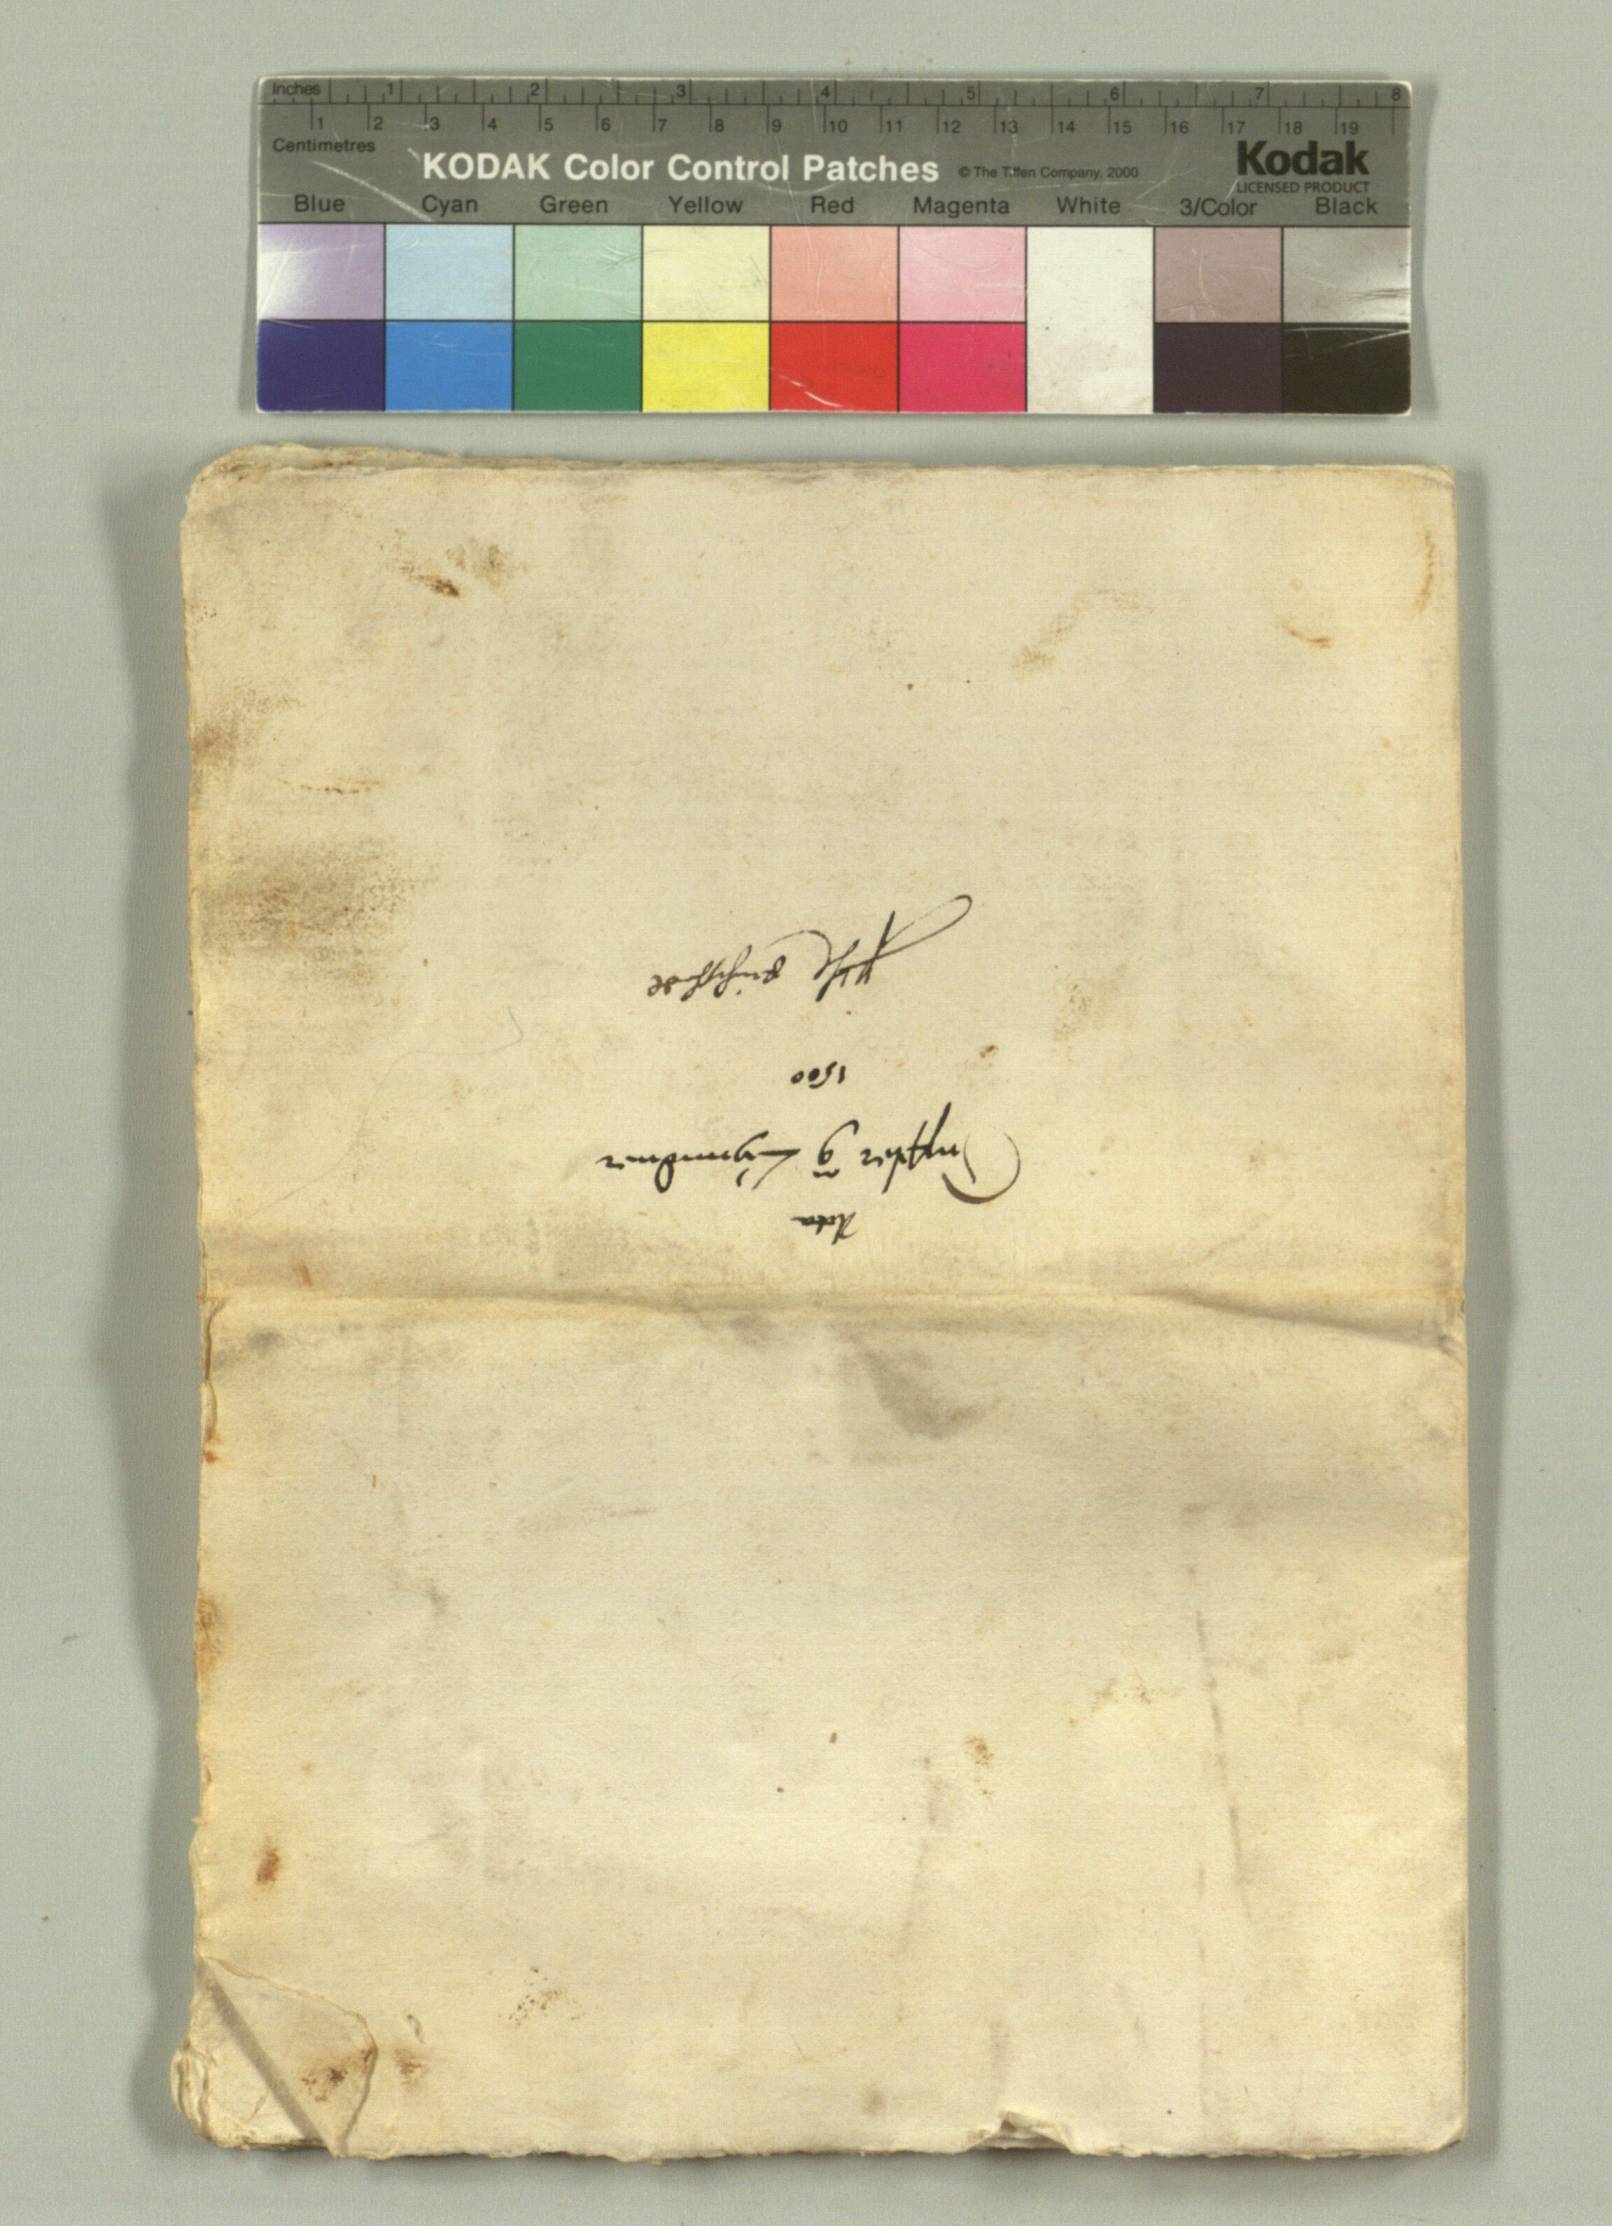 Inches 1 2 3 4 5 6 7 8
1 2 3 4 5 6 7 8 9 10 11 12 13 14 15 16 17 18 19
Centimetres
KODAK Color Control Patches © The Tiffen Company, 2000 Kodak
LICENSED PRODUCT
Blue Cyan Green Yellow Red Magenta White 3/Color Black
Acta
1500